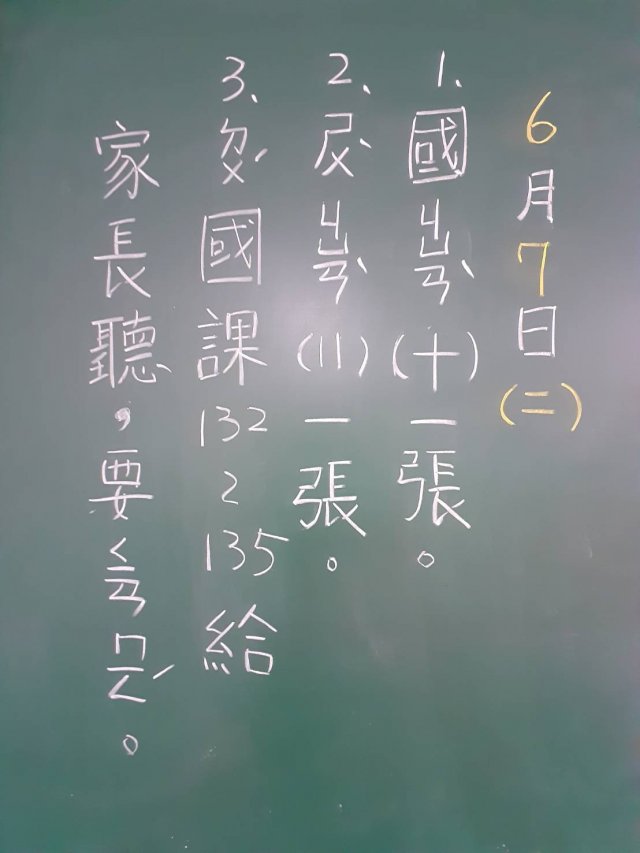 6月7日(二)
1、國ㄐㄩㄢˋ(十)一張。
2、ㄕㄨˋㄐㄩㄢˋ(11)一張。
3、ㄉㄨˊ國課132~135給
家長聽，要ㄑㄧㄢㄇㄧㄥˊ。